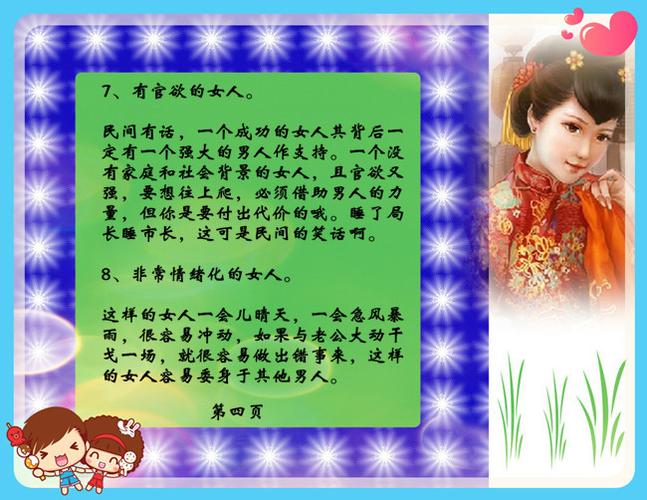 7、有官欲的女人。
民间有话，一个成功的女人其背后一
定有一个强大的男人作支持。一个没
有家庭和社会背景的女人，且官欲又
强，要想往上爬，必须借助男人的力
量，但你是要付出代价的哦。睡了局
长睡市长，这可是民间的笑话啊。
8、非常情绪化的女人。
这样的女人一会儿晴天，一会急风暴
雨，很容易冲动，如果与老公大动干
戈一场，就很容易做出错事来，这样
的女人容易委身于其他男人。
第四页